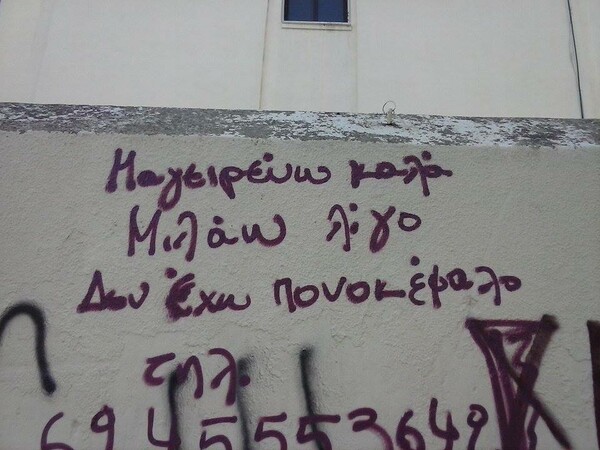 Μαγειρεύω καλά
Μιλάω λίγο
Δεν έχω πονοκέφαλο
τηλ.
6945553649